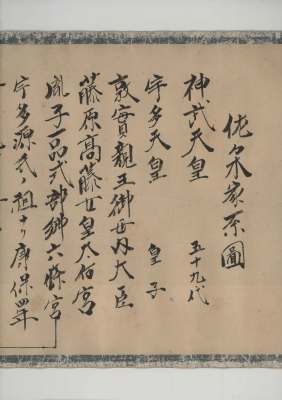 佐々木家系圖
神武天皇 五十九代
宇多天皇 皇子
敦實親王御母内大臣
藤原高藤女皇太伯宮
胤子一品式部卿六條宮
宇多源氏ノ祖ナリ康保四年